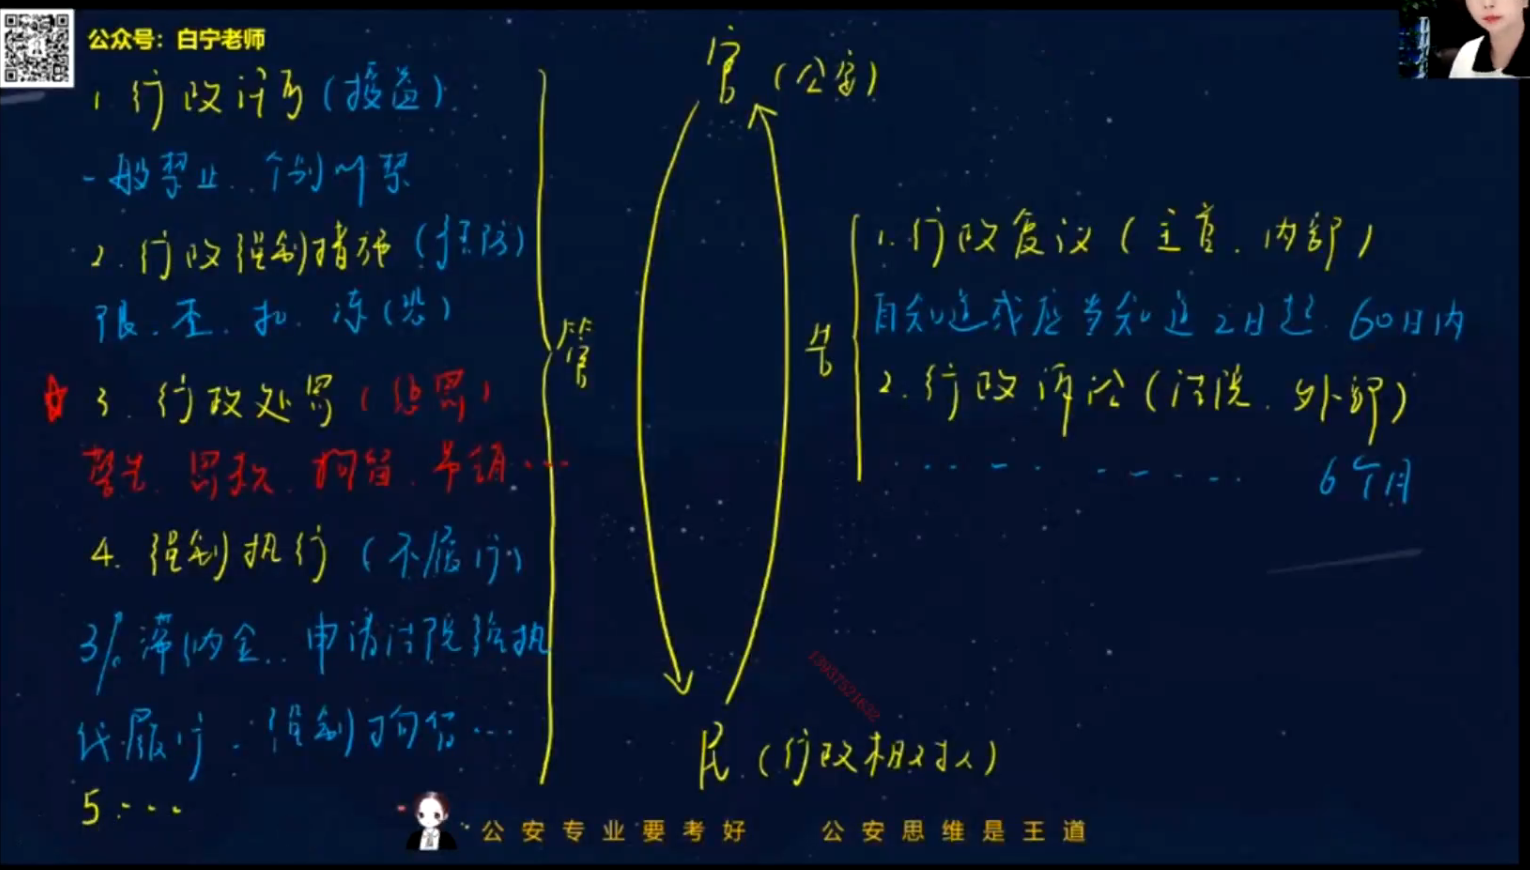 公众号：白宁老师
1. 行政许可（授益）
一般禁止. 个别叫禁
2. 行政强制措施（预防）
限. 查. 扣. 冻（恐）
☆ 3. 行政处罚（惩罚）
警告. 罚款. 拘留. 吊销…
4. 强制执行（不履行）
3%滞纳金.. 申请法院强执
代履行. 强制拘留…
5…
管
官（公安）
民（行政相对人）
告
1. 行政复议（主管. 内部）
自知道或应当知道之日起. 60日内
2. 行政诉讼（法院. 外部）
…… …… 6个月
13937521632
公安专业要考好 公安思维是王道